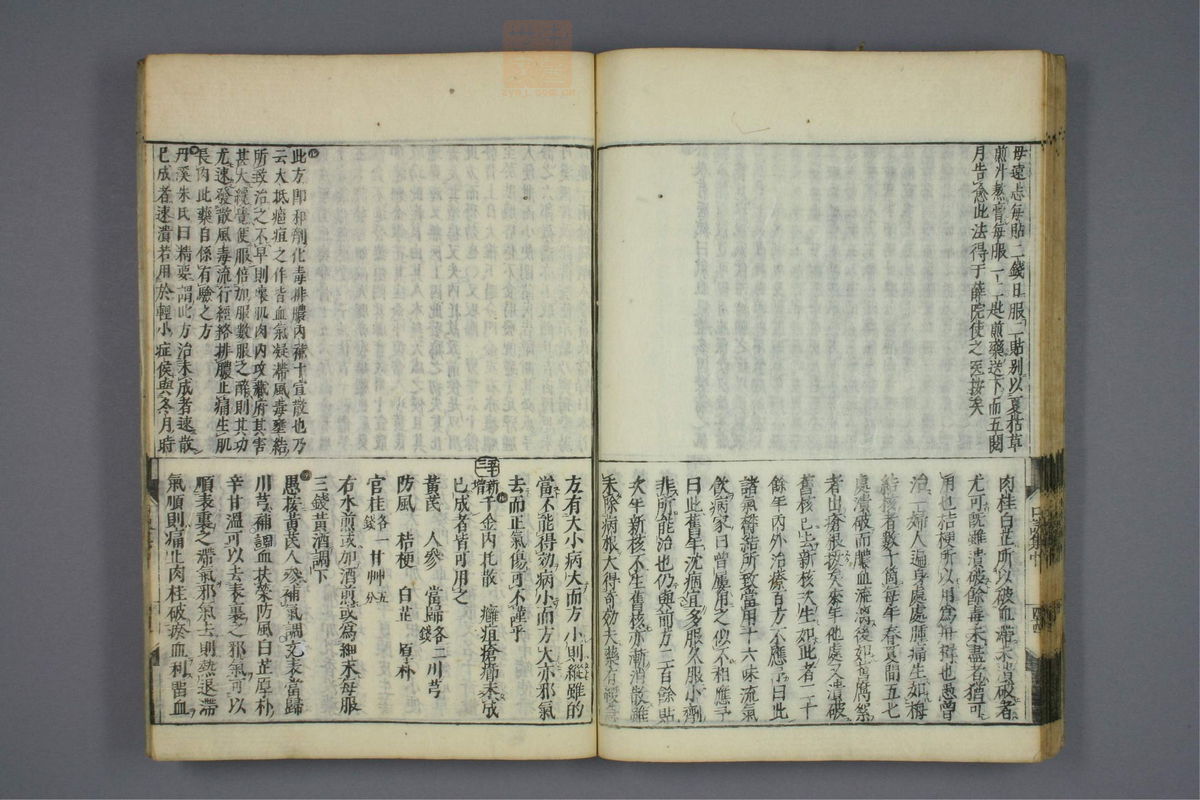 毎遠志每貼二錢日服二貼別以夏枯草
煎汁熬膏每服一二匙煎藥送下而五閱
月告愈此法得于薛院使之医按矣
肉桂白芷所以破血滯未潰破者
尤可既雖潰破餘毒未盡者猶可
用也桔梗所以用為舟楫也愚曾
治一婦人遍身處處腫痛生如梅
結核者數十箇每年春夏間五七
處潰破而膿血流漓後如舊腐㿈
者出瘡根拔矣來年他處又潰破
舊核已去新核次生如此者二十
餘年内外治療百方不應予曰此
諸氣欝結所致當用十六味流氣
飲病家曰曾屢用之似不相應予
曰此舊年沈痾宜多服久服小劑
非所能治也仍與前方二百餘貼
次年新核不生舊核亦漸消散雖
未除病根大得奇効夫藥有緩急
方有大小病大而方小則縱雖的
當不能得効病小而方大亦邪氣
去而正氣傷可不謹乎
新增
千金内托散 癰疽瘡癤未成
已成者皆可用之
黄芪 人參 當歸各二錢 川芎
防風 桔梗 白芷 厚朴
官桂各一錢 甘艸五分
右水煎或加酒煎或為細末每服
三錢黄酒調下
愚按黄芪人參補氣調充表當歸
川芎補調血扶榮防風白芷厚朴
辛甘溫可以去表裏之邪氣可以
順表裏之滯氣邪氣去則熱退滯
氣順則痛止肉桂破瘀血利畱血
此方即和劑化毒排膿内補十宣散也乃
云大抵癰疽之作皆血氣凝滯風毒壅結
所致治之不早則壞肌肉内攻藏府其害
甚大纔覺便服倍加服數服之醉則其功
尤速發散風毒流行經絡排膿止痛生肌
長肉此藥自係有驗之方
丹溪朱氏曰精要謂此方治未成者速散
已成者速潰若用於輕小症候與冬月時